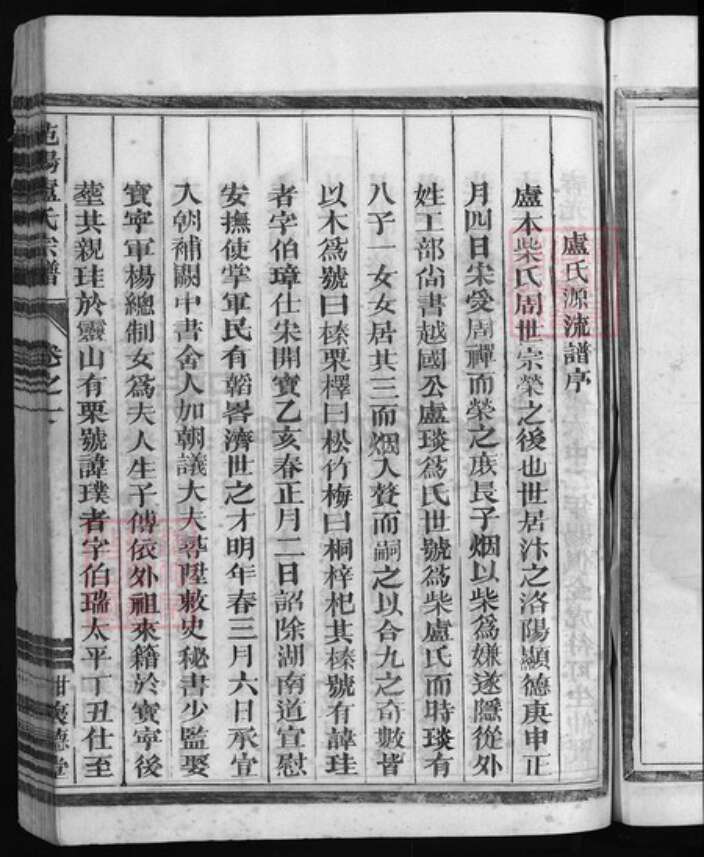 盧氏源流譜序
盧本柴氏周世宗榮之後也世居汴之洛陽顯德庚申正
月四日宋受周禪而榮之庶長子烟以柴為嫌遂隱從外
姓工部尚書越國公盧琰為氏世號為柴盧氏而時琰有
八子一女女居其三而烟入贅而嗣之以合九之奇數皆
以木為號曰榛栗檡曰松竹梅曰桐梓杞其榛號有諱珪
者字伯璋仕宋開寶乙亥春正月二日詔除湖南道宣慰
安撫使掌軍民有韜畧濟世之才明年春三月六日承宣
入朝補闕中書舍人加朝議大夫尋陞敕史秘書少監娶
寶寧軍楊總制女為夫人生子傅依外祖來籍於寶寧後
塟其親珪於靈山有栗號諱璞者字伯瑞太平丁丑仕至
范陽盧氏宗譜
卷之一
德堂